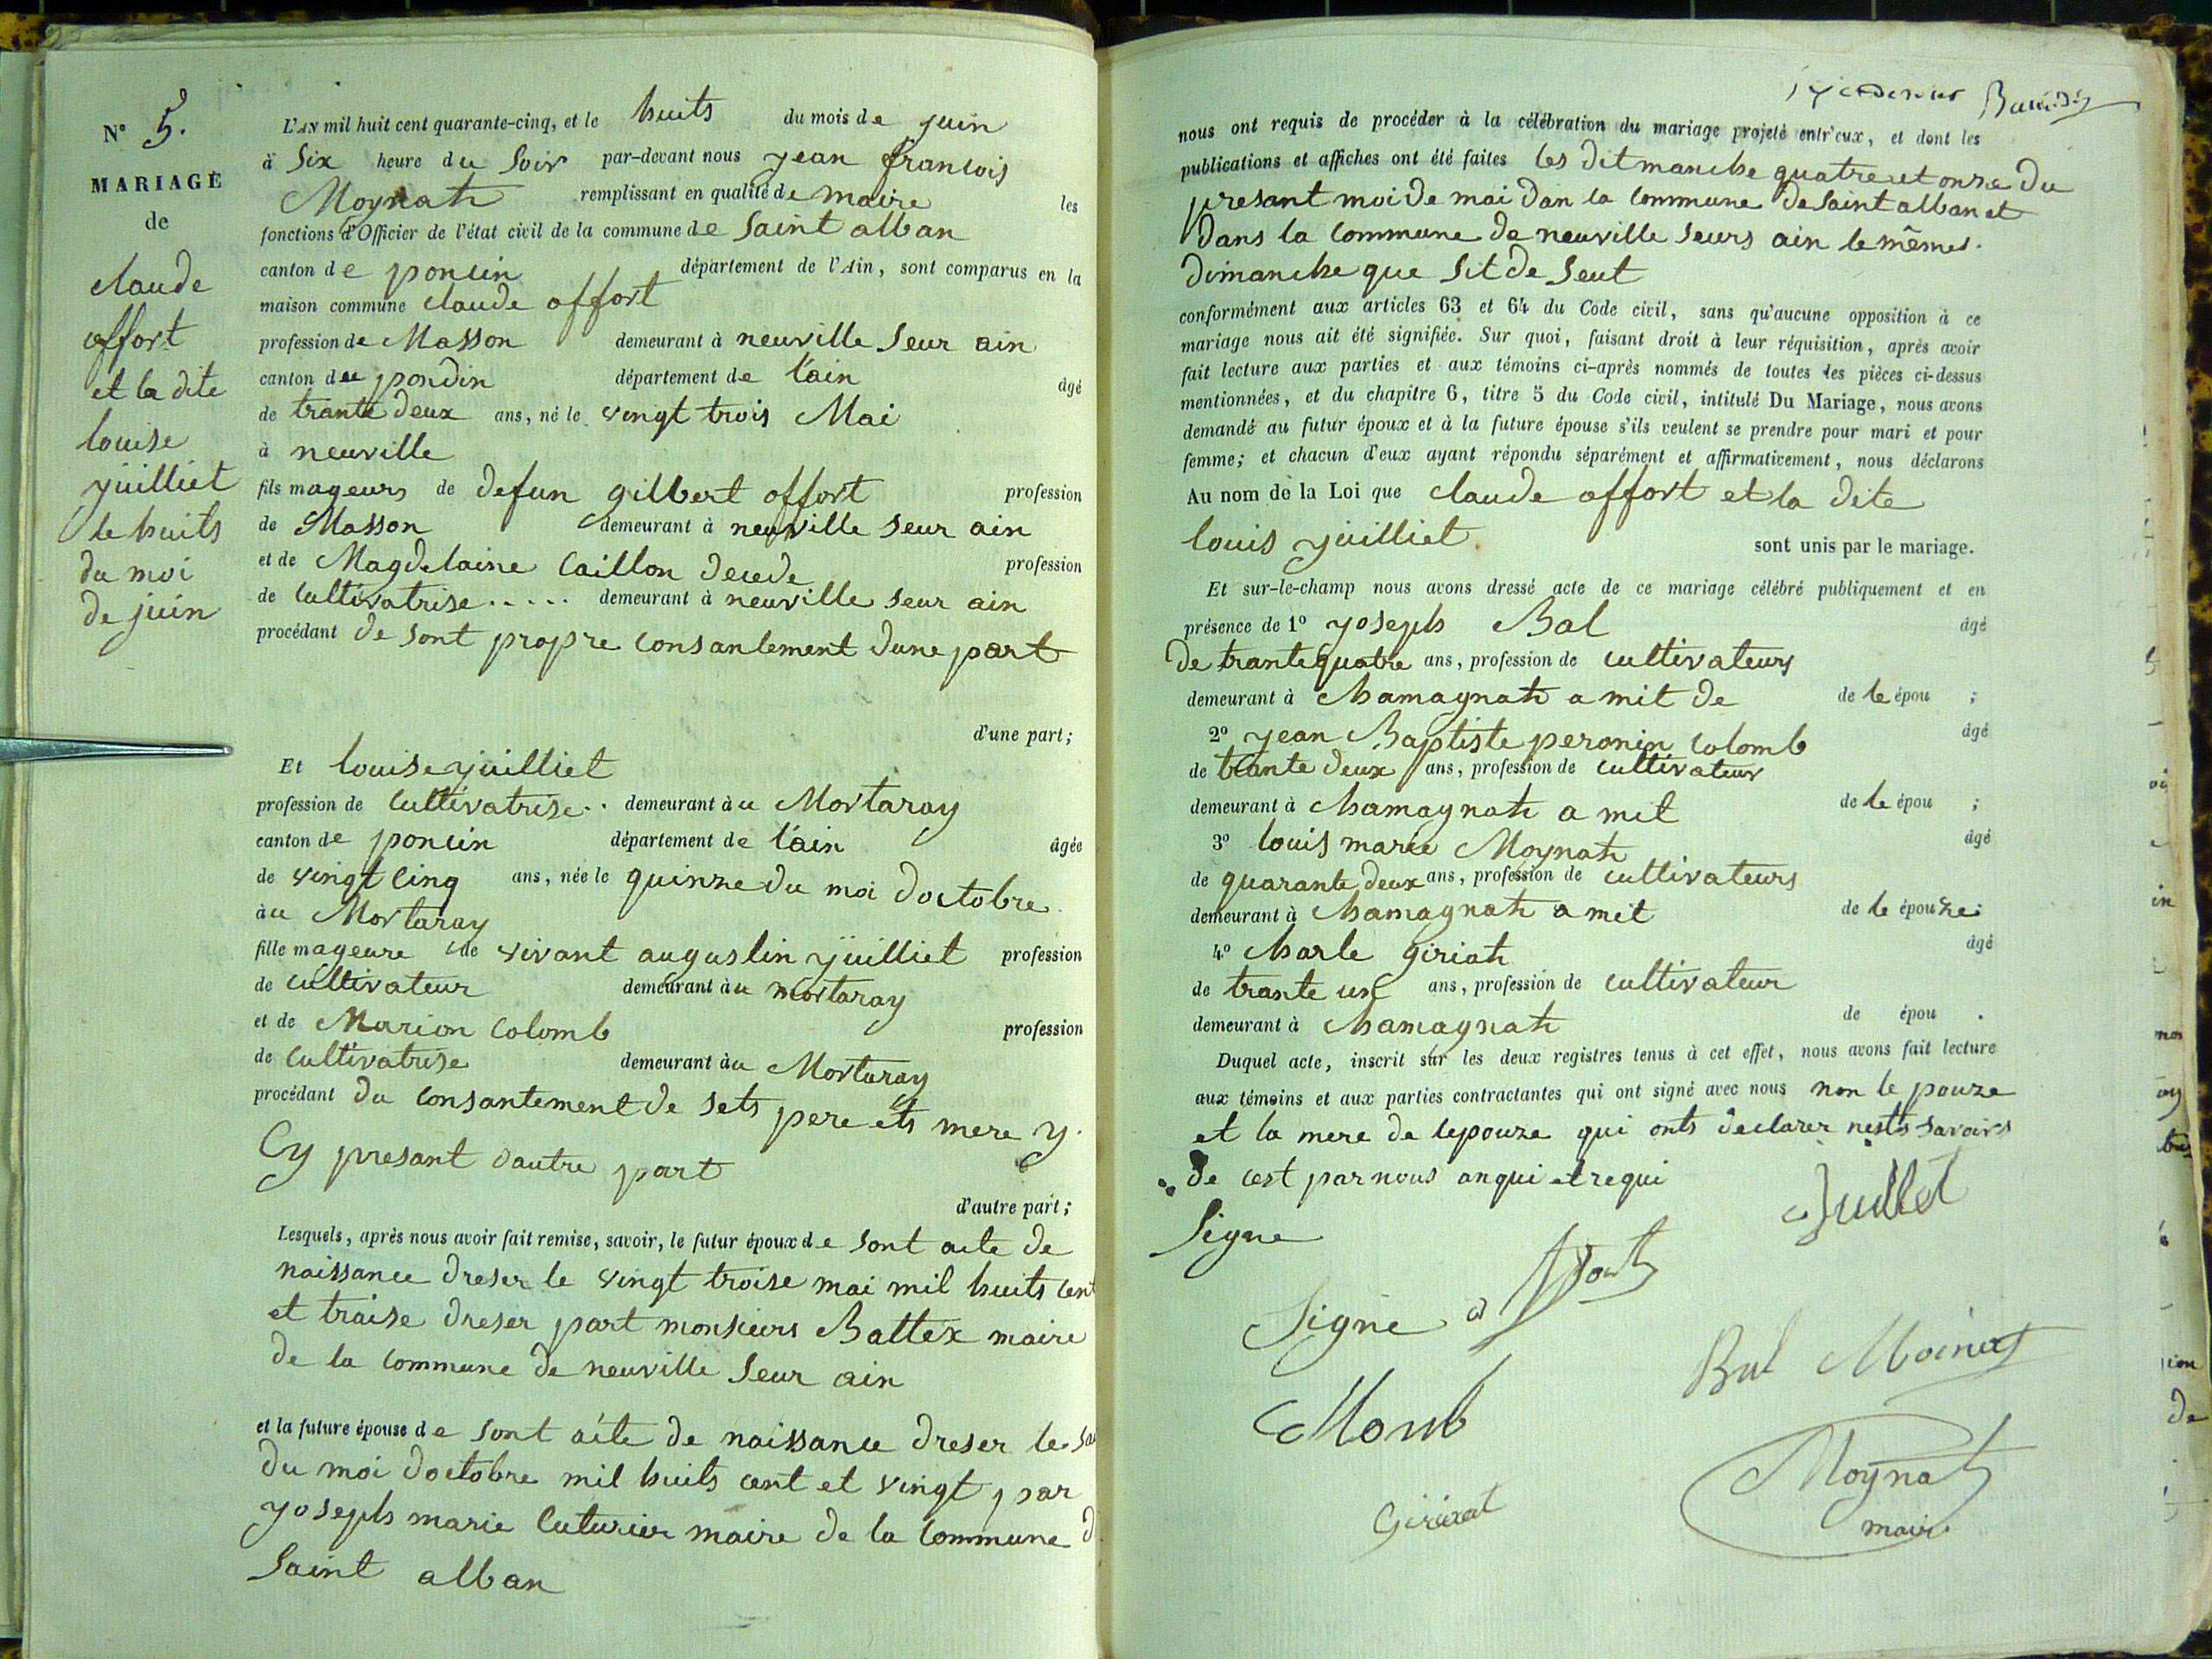 N° 5.
MARIAGE
de
claude
offort
et la dite
louise
juilliet
le huits
du moi
de juin
L'AN mil huit cent quarante-cinq, et le huits du mois de juin
à Six heure du Soir par-devant nous jean francois
Moynat remplissant en qualité de maire les
fonctions d'Officier de l'état civil de la commune de Saint alban
canton de poncin département de l'Ain, sont comparus en la
maison commune claude offort
profession de Masson demeurant à neuville Seur ain
canton de pondin département de l'ain âgé
de trante deux ans, né le vingt trois Mai
à neuville
fils mageurs de defun gilbert offort profession
de Masson demeurant à neuville seur ain
et de Magdelaine Caillon decede profession
de Cultivatrise..... demeurant à neuville seur ain
procédant de sont propre consantement dune part
d'une part;
Et louise juilliet
profession de Cultivatrise.. demeurant àu Mortaray
canton de poncin département de l'ain âgée
de vingt cinq ans, née le quinze du moi doctobre
àu Mortaray
fille mageure de vivant augustin juilliet profession
de cultivateur demeurant àu mortaray
et de Marion Colomb profession
de Cultivatrise demeurant àu Mortaray
procédant du Consantement de sets pere ets mere y.
Cy presant dautre part
d'autre part;
Lesquels, après nous avoir fait remise, savoir, le futur époux de sont acte de
naissance dreser le vingt troise mai mil huits cent
et traise dreser part monsieurs Battex maire
de la commune de neuville Seur ain
et la future épouse de sont acte de naissance dreser le
du moi doctobre mil huits cent et vingt par
joseph marie Cuturier maire de la Commune d
Saint alban
nous ont requis de procéder à la célébration du mariage projeté entr'eux, et dont les
publications et affiches ont été faites les ditmanche quatre et onze du
presant moi de mai dan la Commune de Saint alban et
dans la Commune de neuville seurs ain le mêmes.
dimanche que sit de seut
conformément aux articles 63 et 64 du Code civil, sans qu'aucune opposition à ce
mariage nous ait été signifiée. Sur quoi, faisant droit à leur réquisition, après avoir
fait lecture aux parties et aux témoins ci-après nommés de toutes les pièces ci-dessus
mentionnées, et du chapitre 6, titre 5 du Code civil, intitulé Du Mariage, nous avons
demandé au futur époux et à la future épouse s'ils veulent se prendre pour mari et pour
femme; et chacun d'eux ayant répondu séparément et affirmativement, nous déclarons
Au nom de la Loi que claude offort et la dite
louis juilliet. sont unis par le mariage.
Et sur-le-champ nous avons dressé acte de ce mariage célébré publiquement et en
présence de 1° joseph Bal âgé
de trante quatre ans, profession de cultivateurs
demeurant à Chamagnat a mit de de le épou ;
2° jean Baptiste peronin Colomb âgé
de trante deux ans, profession de cultivateur
demeurant à Chamagnat a mit de le épou ;
3° louis marie Moynat âgé
de quarante deux ans, profession de cultivateurs
demeurant à Chamagnat a mit de le épouze;
4° Charle giriat âgé
de trante un ans, profession de cultivateur
demeurant à Chamagnat de épou .
Duquel acte, inscrit sur les deux registres tenus à cet effet, nous avons fait lecture
aux témoins et aux parties contractantes qui ont signé avec nous non le pouze
et la mere de lepouze qui onts declarer nests savoirs
de cest par nous anqui et requi
Signe
Juillet
Signe offort
Bal Moinat
Colomb
Moynat
maire
Giriat